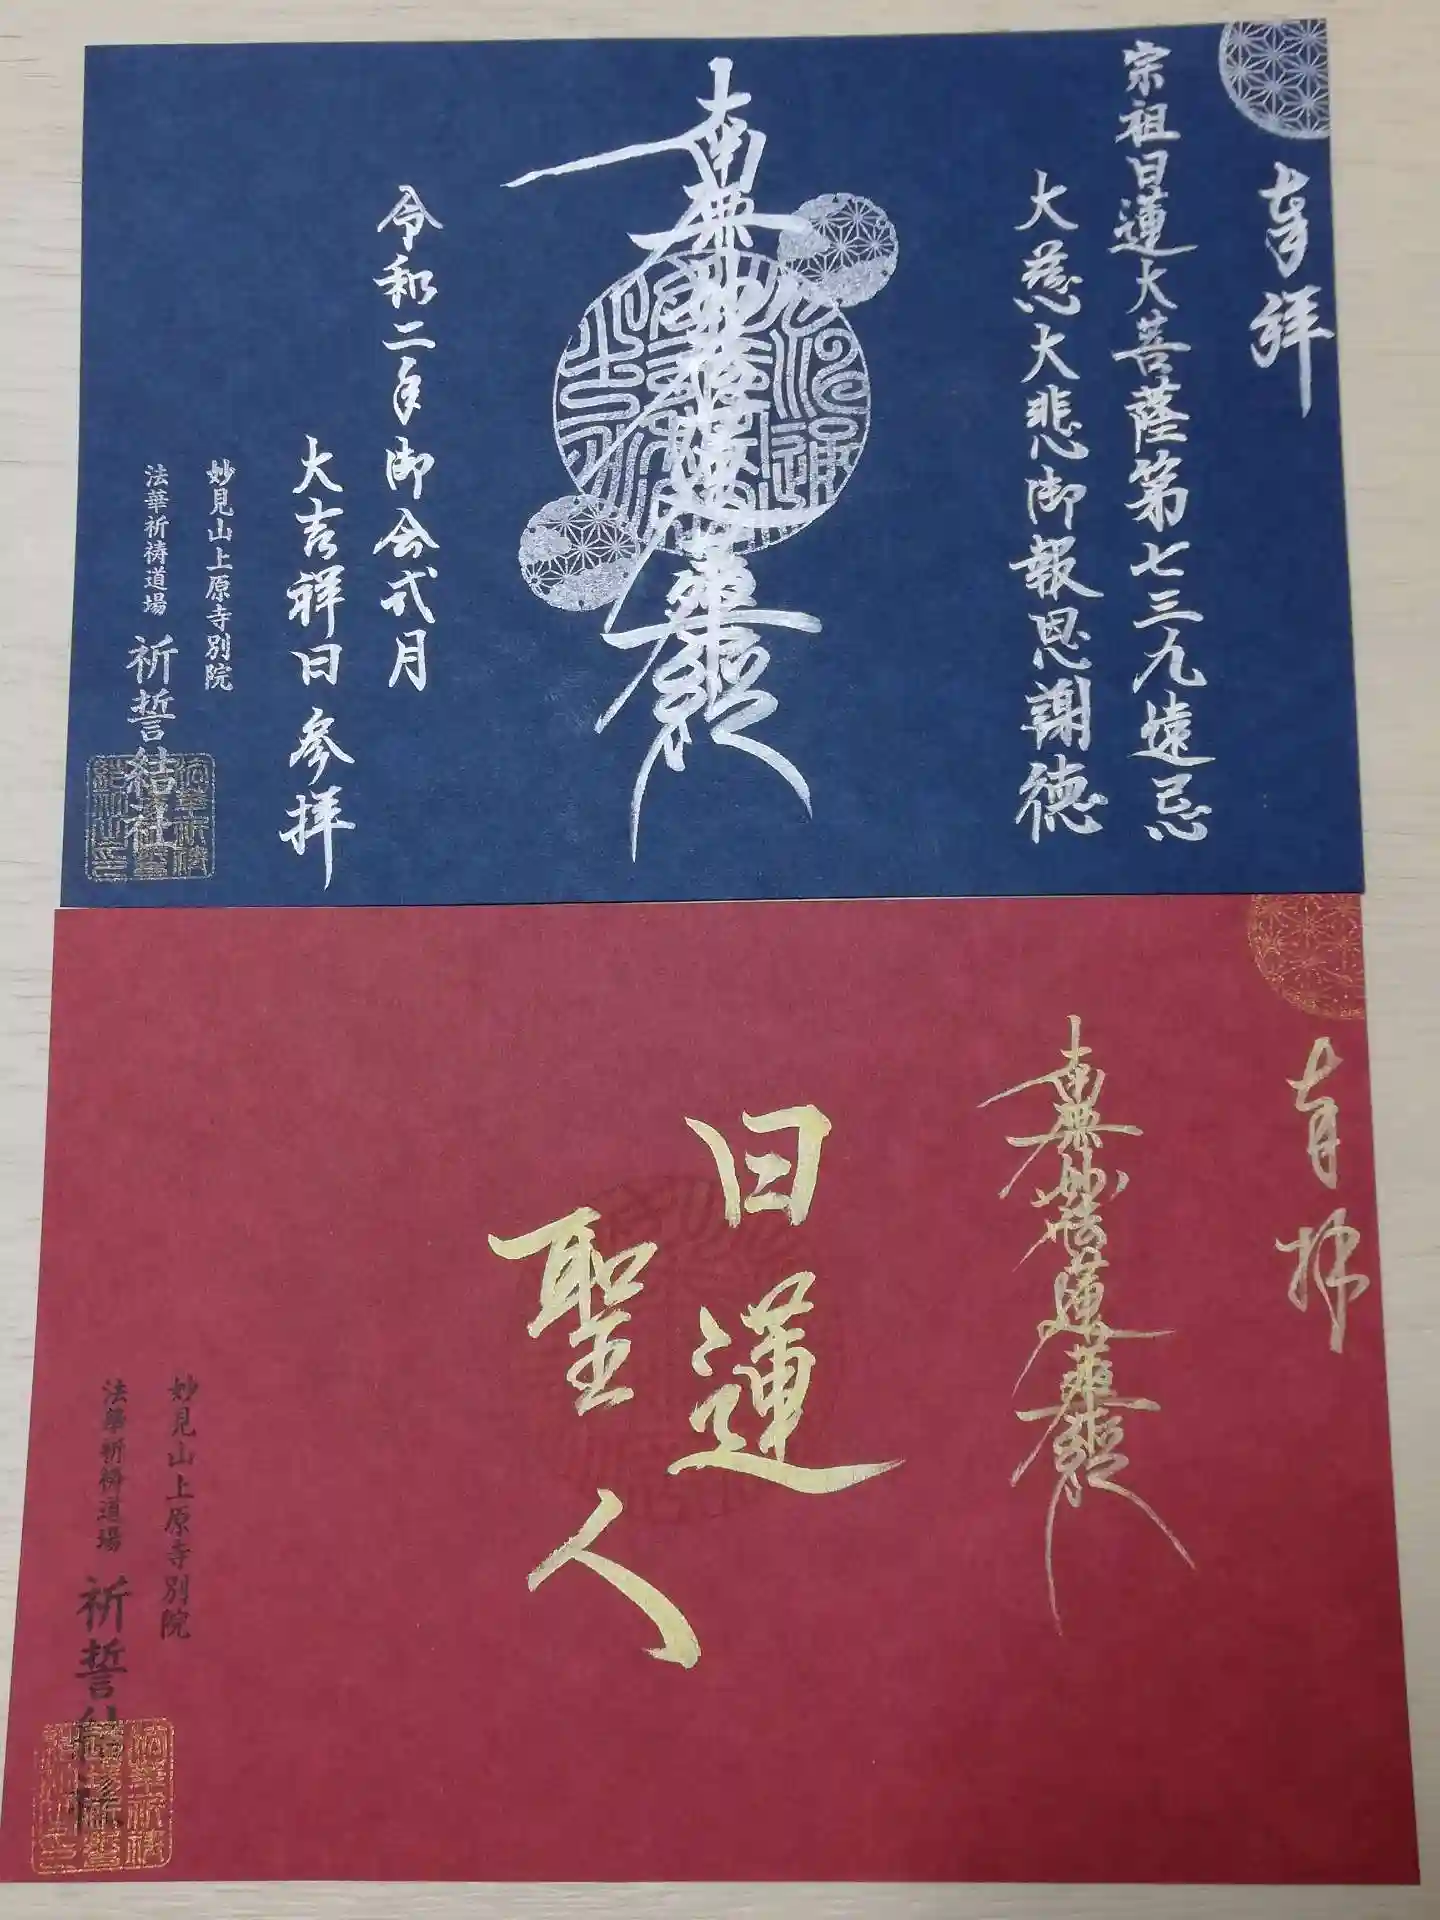 奉拝
宗祖日蓮大菩薩第七三九遠忌
大慈大悲御報恩謝徳
南無妙法蓮華経
令和二年御会式月
大吉祥日 参拝
妙見山上原寺別院
法華祈祷道場 祈誓結社
奉拝
南無妙法蓮華経
日蓮
聖人
妙見山上原寺別院
法華祈祷道場 祈誓結社